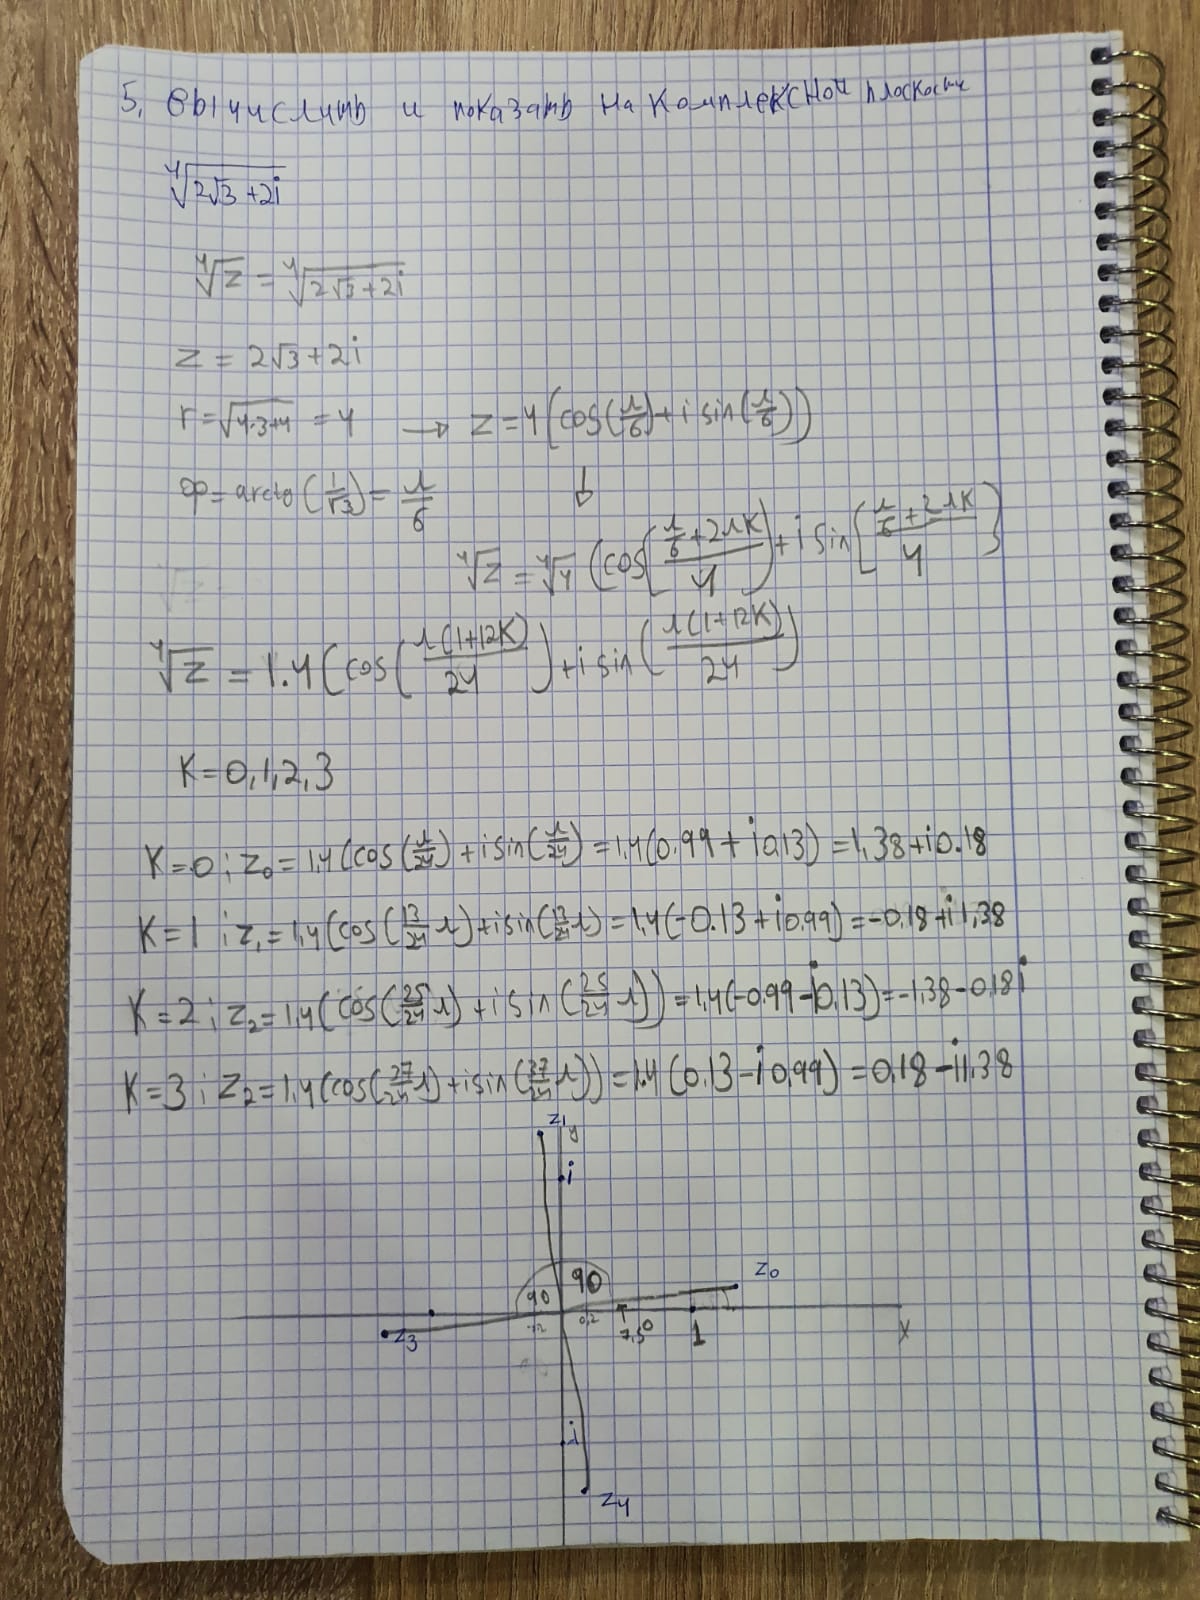 5. Вычислить и показать на комплексной плоскости
∜(2√3 + 2i)
∜z = ∜(2√3 + 2i)
z = 2√3 + 2i
r = √(4·3+4) = 4 → z = 4(cos(π/6) + i sin(π/6))
φ = arctg(1/√3) = π/6 ↓
∜z = ∜4 (cos((π/6 + 2πK)/4) + i sin((π/6 + 2πK)/4)
∜z = 1.4(cos(π(1+12K)/24) + i sin(π(1+12K)/24)
K = 0, 1, 2, 3
K=0; z₀ = 1,4(cos(π/24) + i sin(π/24) = 1,4(0.99 + i0,13) = 1,38 + i0.18
K=1; z₁ = 1,4(cos(13/24 π) + i sin(13/24 π) = 1,4(-0.13 + i0,99) = -0,18 + i1,38
K=2; z₂ = 1,4(cos(25/24 π) + i sin(25/24 π)) = 1,4(-0,99 - i0,13) = -1,38 - 0,18i
K=3; z₂ = 1,4(cos(37/24 π) + i sin(37/24 π)) = 1,4(0,13 - i0,99) = 0,18 - i1,38
z₁ y
i
90 90 z₀
z₃ 0,2 7,5° 1 x
i
z₄